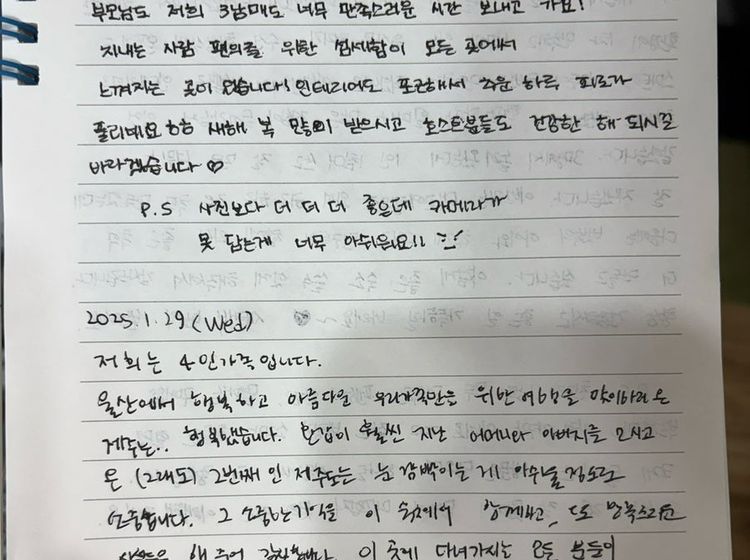 부모님도 저희 3남매도 너무 만족스러운 시간 보내고 가요!
지내는 사람 편의를 위한 섬세함이 모든 곳에서
느껴지는 곳이 였습니다! 인테리어도 포근해서 추운 하루 피로가
풀리네요 ㅎㅎ 새해 복 많이 받으시고 호스트분들도 건강한 해 되시길
바라겠습니다 ♡
P.S 사진보다 더 더 더 좋은데 카메라가
못 담는게 너무 아쉬워요!!
2025.1.29 (Wed)
저희는 4인가족입니다.
울산에서 행복하고 아름다운 우리가족만을 위한 여행을 맞이하러 온
제주는.. 행복했습니다. 환갑이 훌씬 지난 어머니와 아버지를 모시고
온 (그래도) 2번째 인 제주도는 눈 깜빡이는 게 아쉬울 정도로
소중했습니다. 그 소중한 기억을 이 숙소에서 함께하고, 또 만족스러운
해 주어 감사합니다. 이 곳에 다녀가시는 모든 분들이